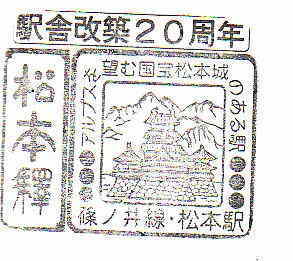 駅舎改築20周年
松本驛
アルプスを
望む国宝松本城
のある駅
篠ノ井線・松本駅